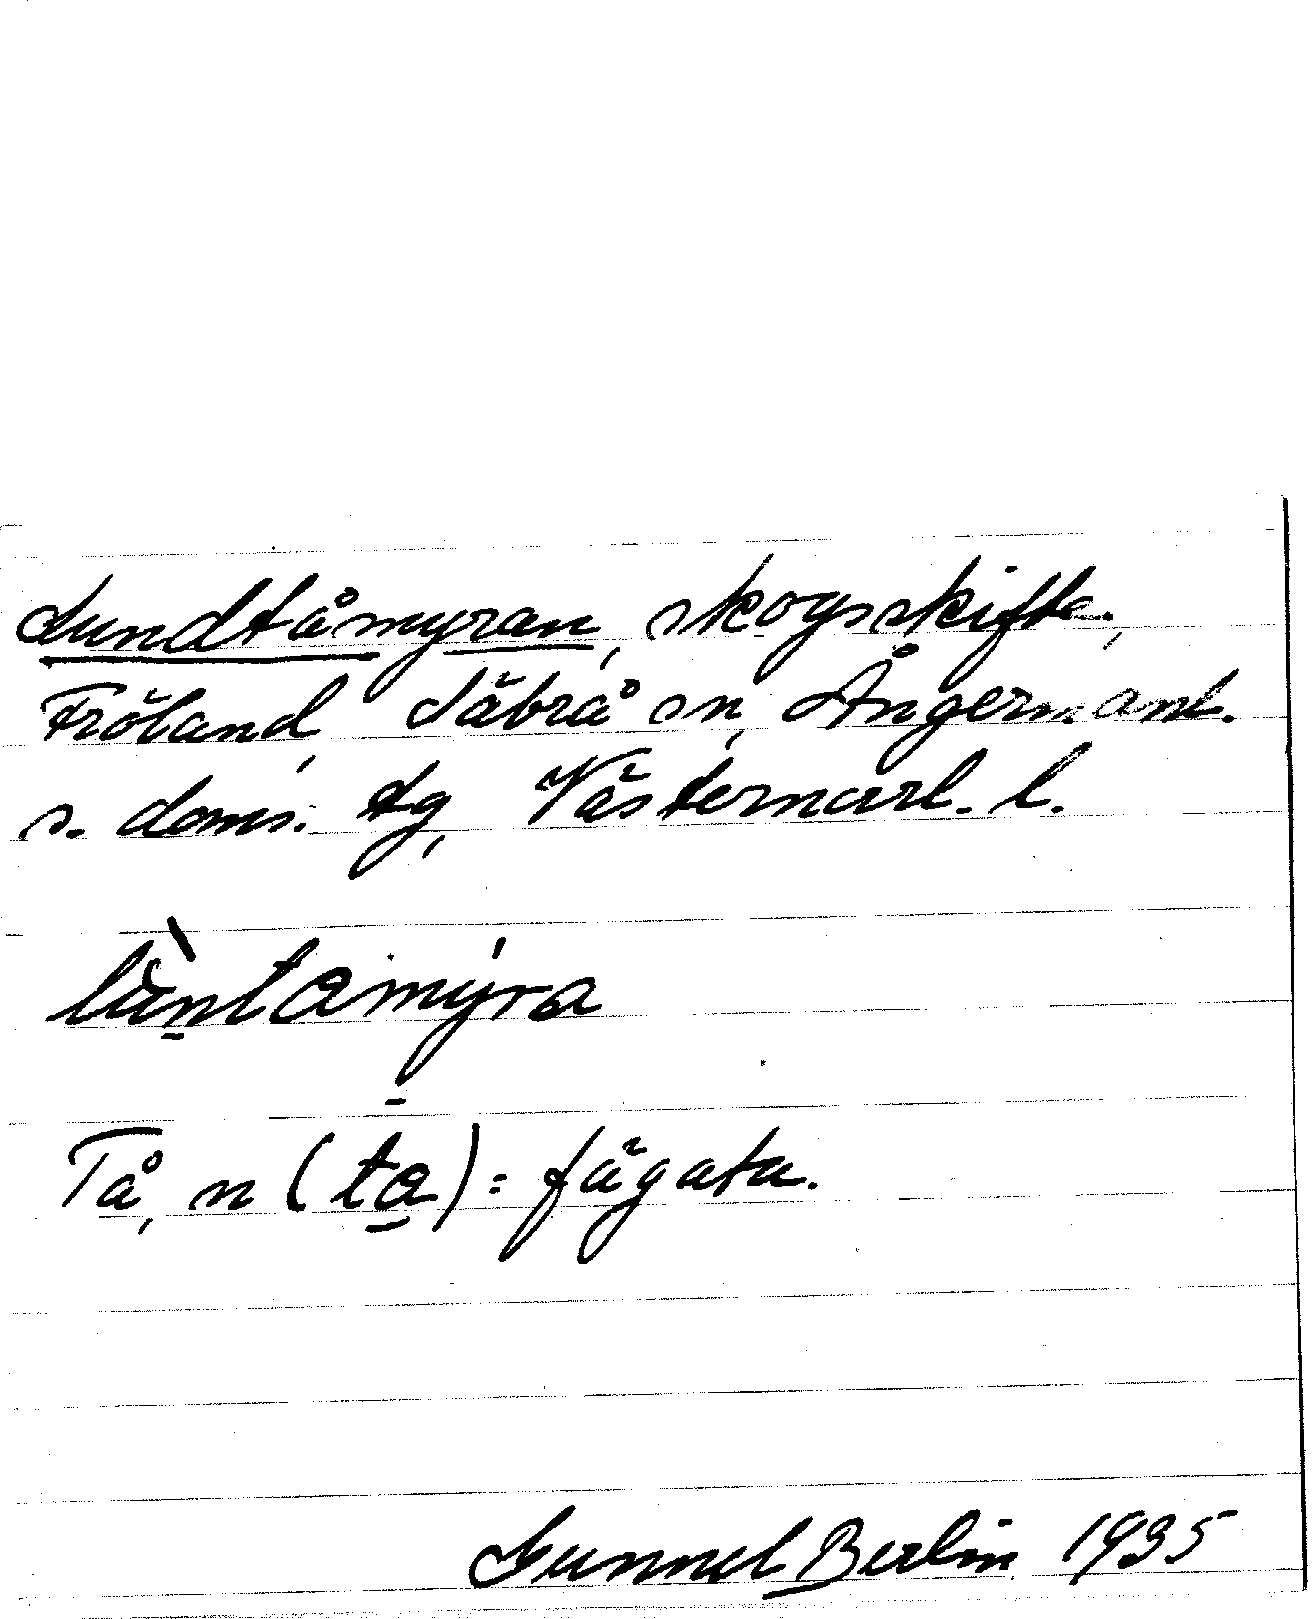 Lundtåmyran, skogsskifte,
Fröland, Säbrå sn, Ångermanl.
s. doms. tg, Västernorrl. l.
lùn̠tamý̠ra
Tå, n (ta̠) = fägata.
Gunnel Berlin 1935